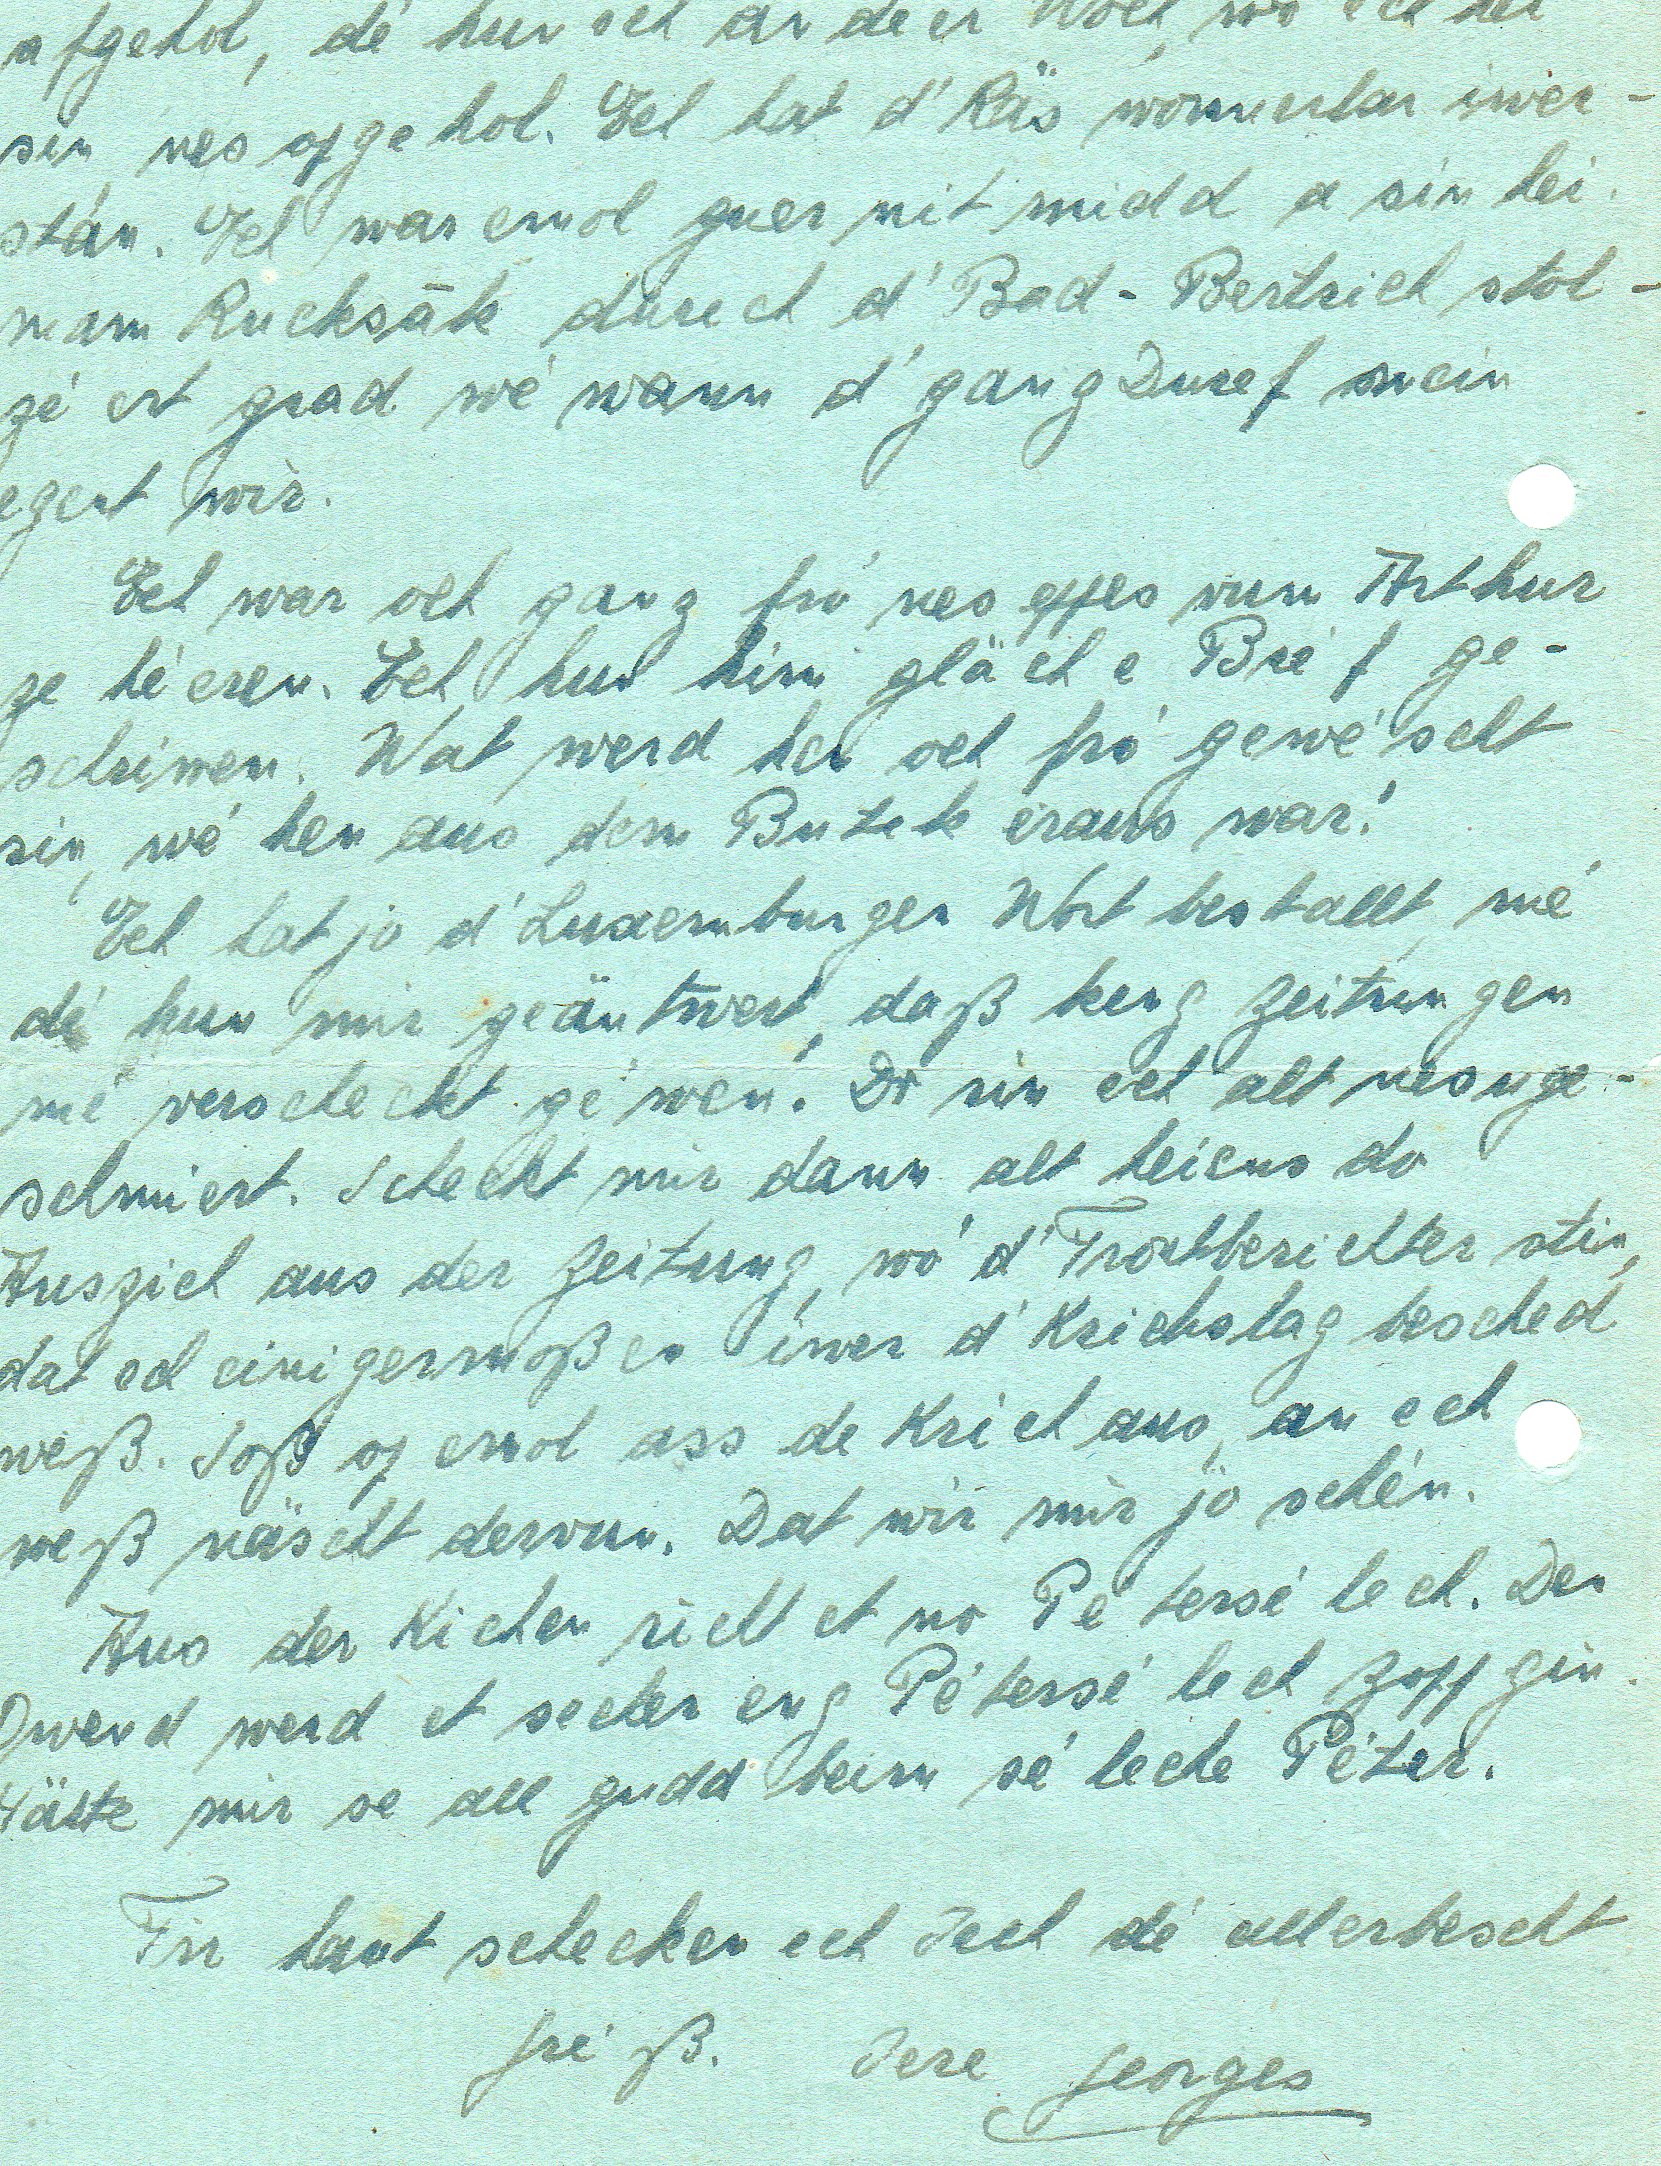 afgehol, dé hun ech an deer Woch, wo ech hei
sin, nes opgehol. Ech hat d'Räs wonnerbar iwer-
stán. Ech war emol guer nit midd a sin hei
mam Rucksák durech d'Bad-Bertrich stol-
zéert grad wé wann d'ganz Duref mein
egent wir.
Ech war och ganz fró nes eppes vum Arthur
ze héeren. Ech hun him gläch e Bréf ge-
schriwen. Wat werd hen och fró gewéscht
sin, wé hen aus dem Buttek eraus war!
Ech hat jo d'Luxemburger Wort bestallt, mé
dé hun mir geäntwert, daß keng Zeitungen
mé verscheckt géwen. Do sin ech alt nes uge-
schmiert. Scheckt mir dann alt heiens do
Auszich aus der Zeitung, wó d'Frontberichter stin,
dat ech einigermoßen iwer d'Krichslag besched
weß. Soß op emol ass de Krich aus, an ech
weß näscht dervun. Dat wir mir jo schén.
Aus der Kichen richt et no Pétersélech. Den
Owend werd et secher eng Pétersélech Zopp gin.
Häste mir se all gudd beim séleche Péter.
Fir haut schecken ech Iech dé allerbescht
Gréß. Iere Georges